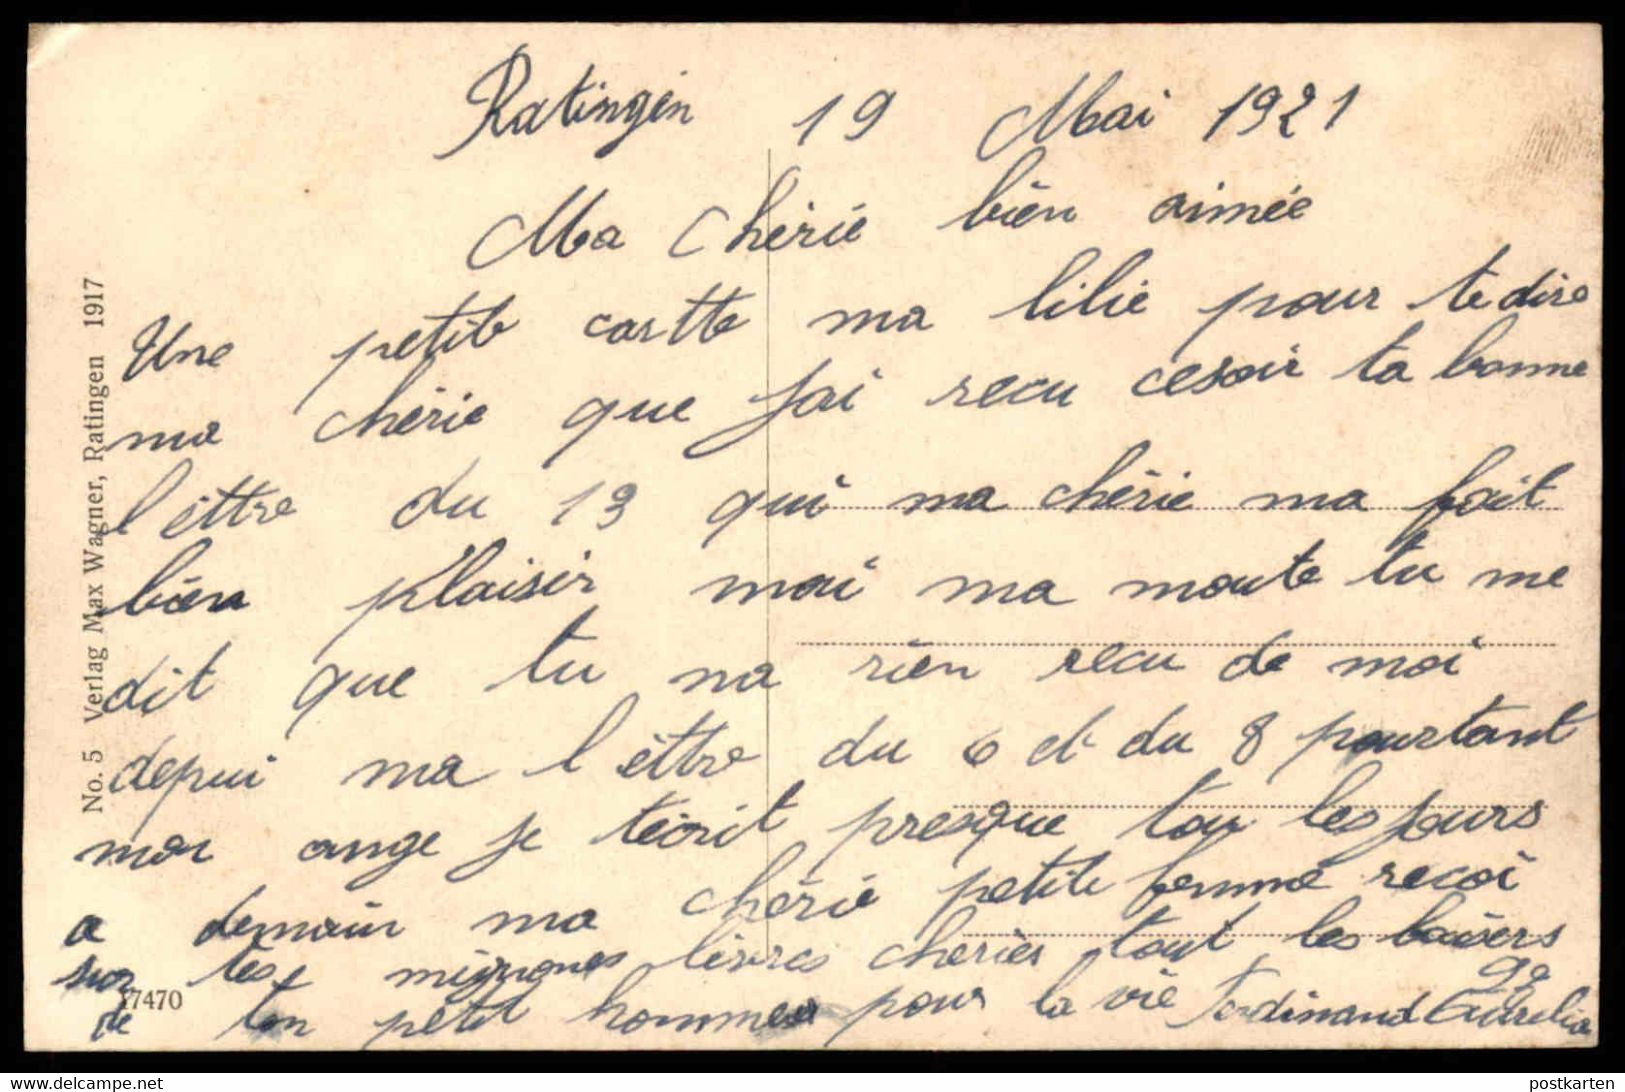 Ratingen 19 Mai 1921
Ma chérie bien aimée
Une petite cartte ma lilie pour te dire
ma chérie que jai recu cesoir ta bonne
l'èttre du 13 qui ma chérie ma fait
bien plaisir moi ma moute tu me
dit que tu na rien recu de moi
depui ma l'èttre du 6 et du 8 pourtant
mon ange je técrit presque tou les jours
a demain ma chérie petite femme recoi
sur tes mignones lèvres cheries tout les baisers
de ton petit homme pour la vie Ferdinand Aurelia
No. 5 Verlag Max Wagner, Ratingen 1917
17470
postkarten